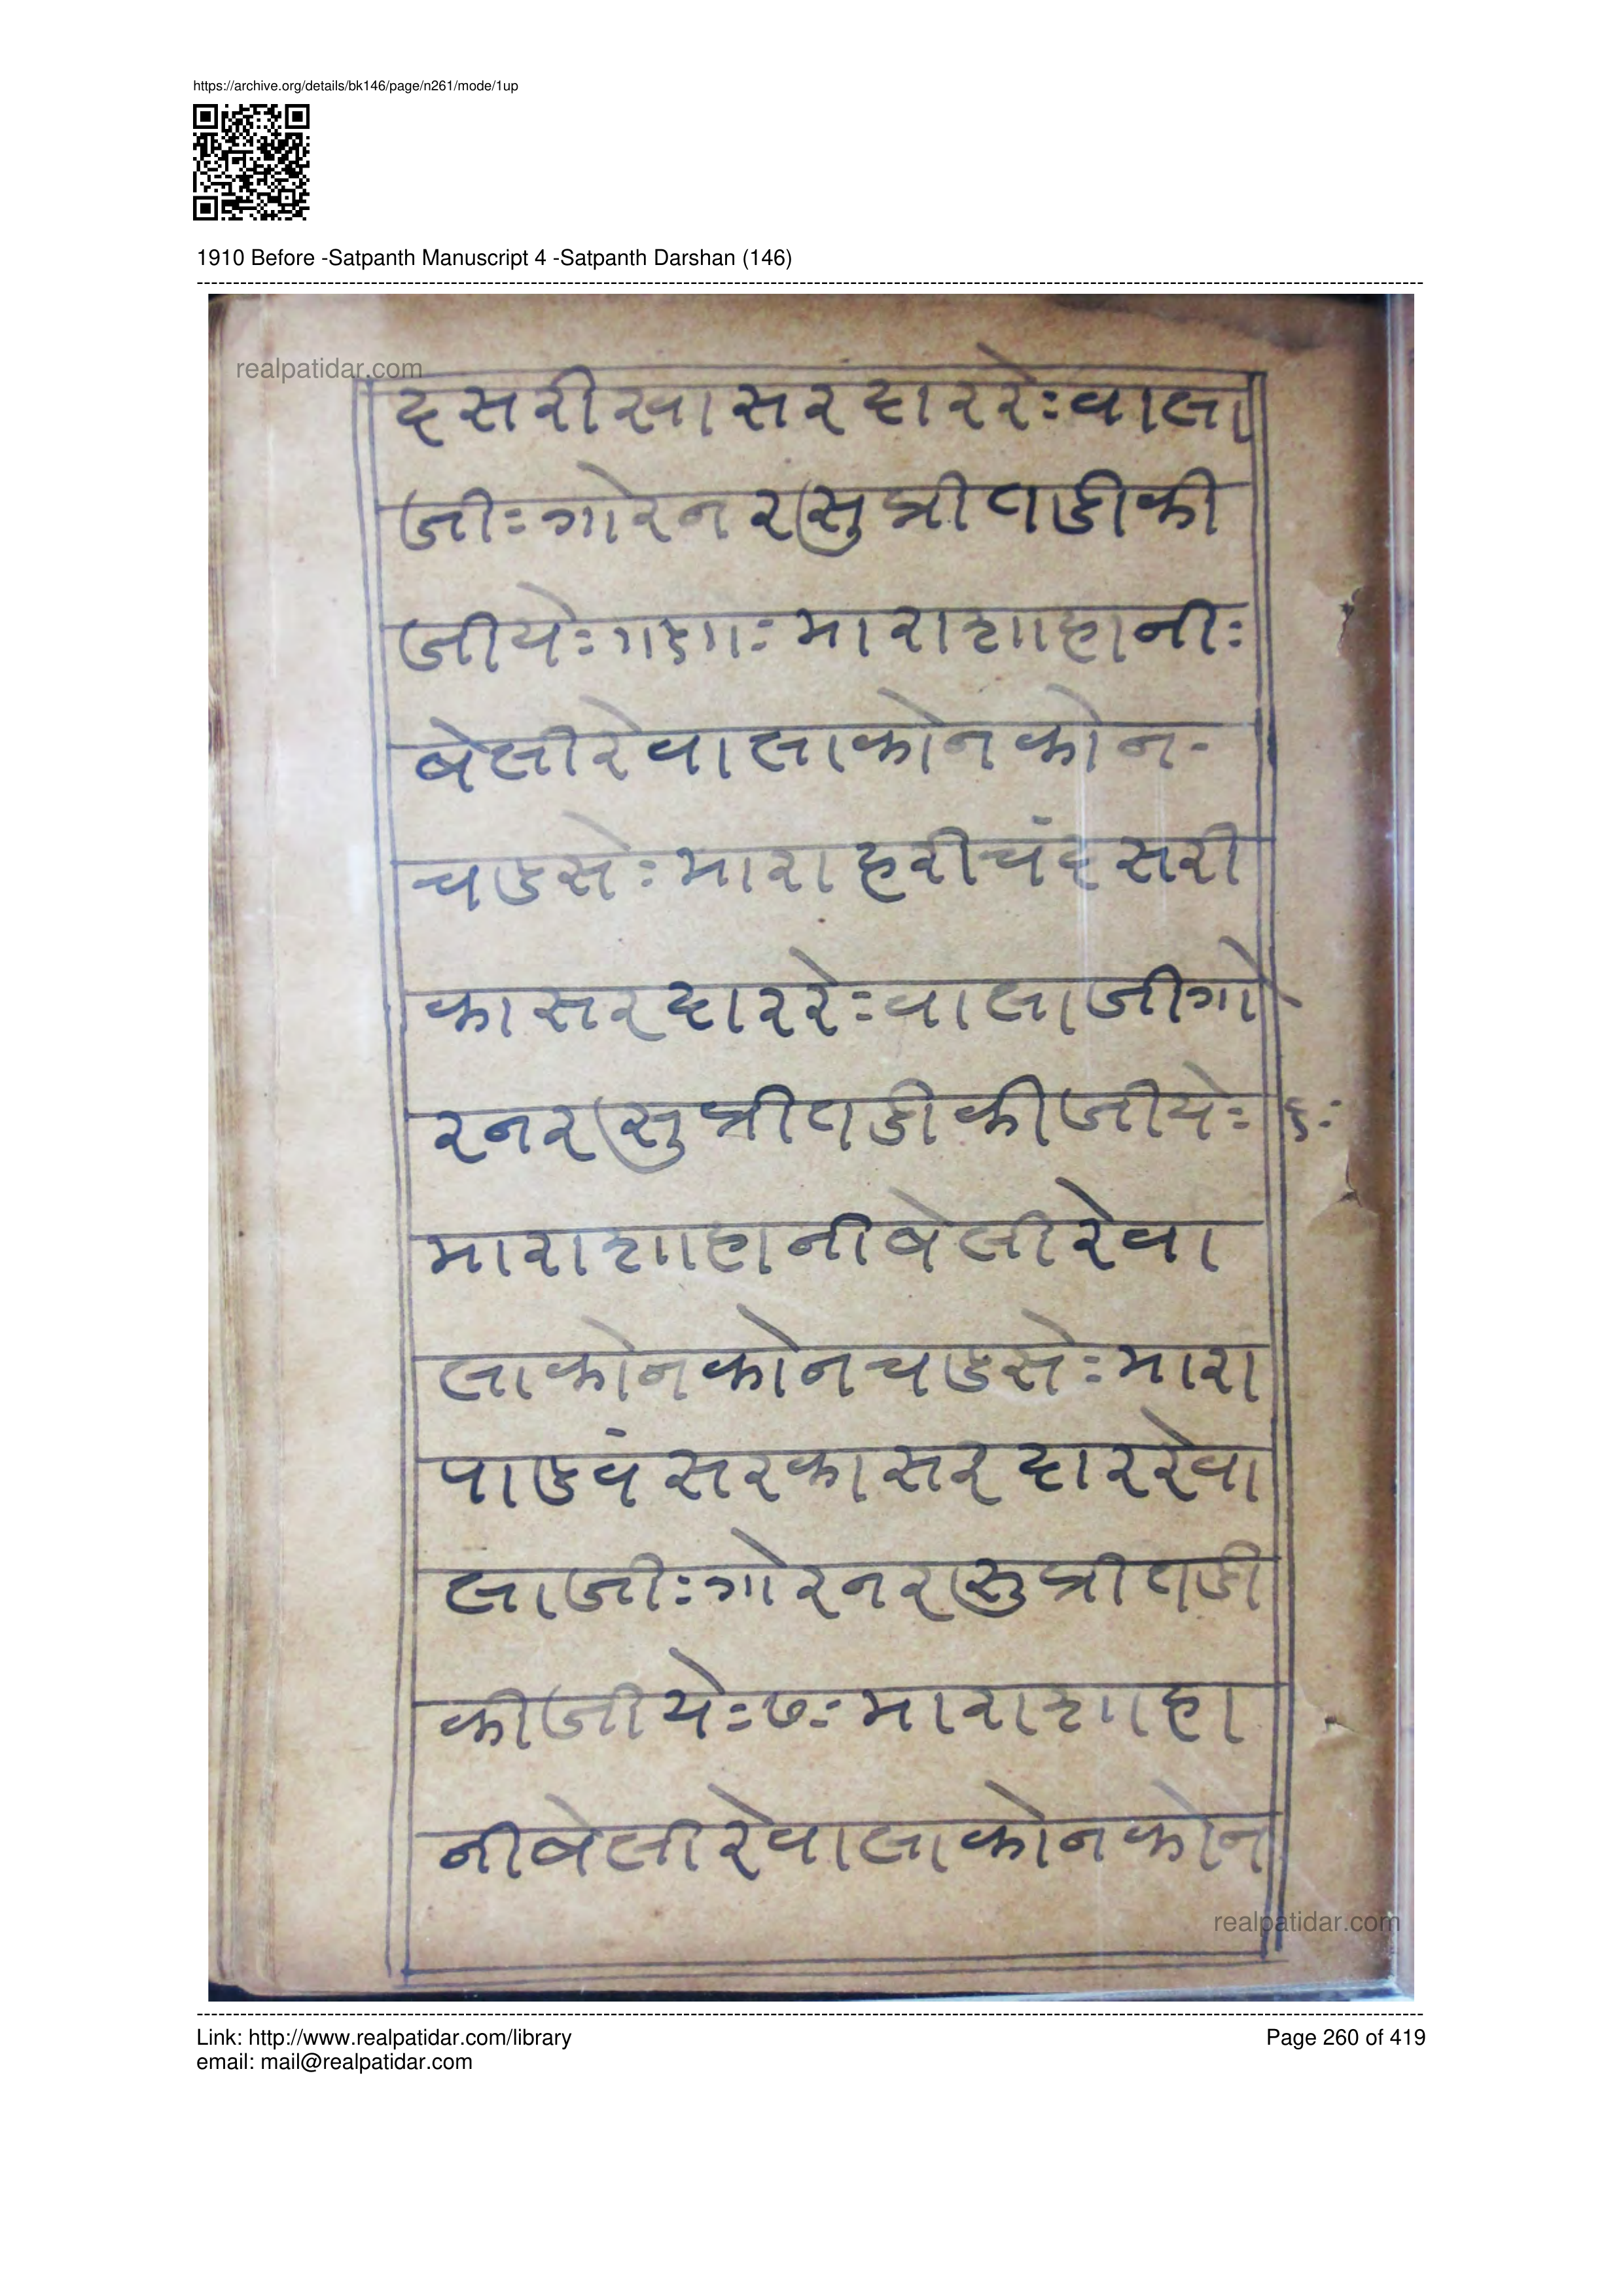 https://archive.org/details/bk146/page/n261/mode/1up
1910 Before -Satpanth Manuscript 4 -Satpanth Darshan (146)
realpatidar.com
दसरीखासरदाररेःवाला
जीःगोरनरसुप्रीतडीकी
जीयेः॥५॥ःमाराशाहानीः
बेलीरेवालाकोनकोन-
चडसेःमाराहरीचंदसरी
कासरदाररेःवालाजीगो
रनरसुप्रीतडीकीजीयेः ६ः
माराशाहानीबेलीरेवा
लाकोनकोनचडसेःमारा
पाडवंसरकासरदाररेवा
लाजीःगोरनरसुप्रीतडी
कीजीयेः७ःमाराशाहा
नीबेलीरेवालाकोनकोन
realpatidar.com
Link: http://www.realpatidar.com/library
email: mail@realpatidar.com
Page 260 of 419